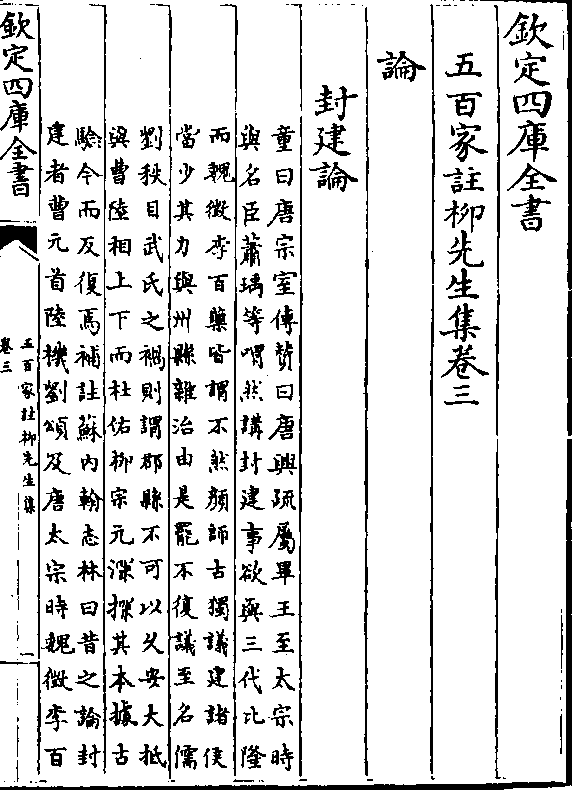 欽定四庫全書
五百家註柳先生集卷三
論
封建論
童曰唐宗室傳贊曰唐興疏屬畢王至太宗時
與名臣蕭瑀等喟然講封建事欲與三代比隆
而魏徵李百藥皆謂不然顔師古獨議建諸侯
當少其力與州縣雜治由是罷不復議至名儒
劉秩目武氏之禍則謂郡縣不可以乆安大抵
與曹陸相上下而杜佑柳宗元深探其本據古
驗今而反復焉補註蘇内翰志林曰昔之論封
建者曹元首陸機劉頌及唐太宗時魏徵李百
欽定四庫全書
五百家註柳先生集
卷三
一